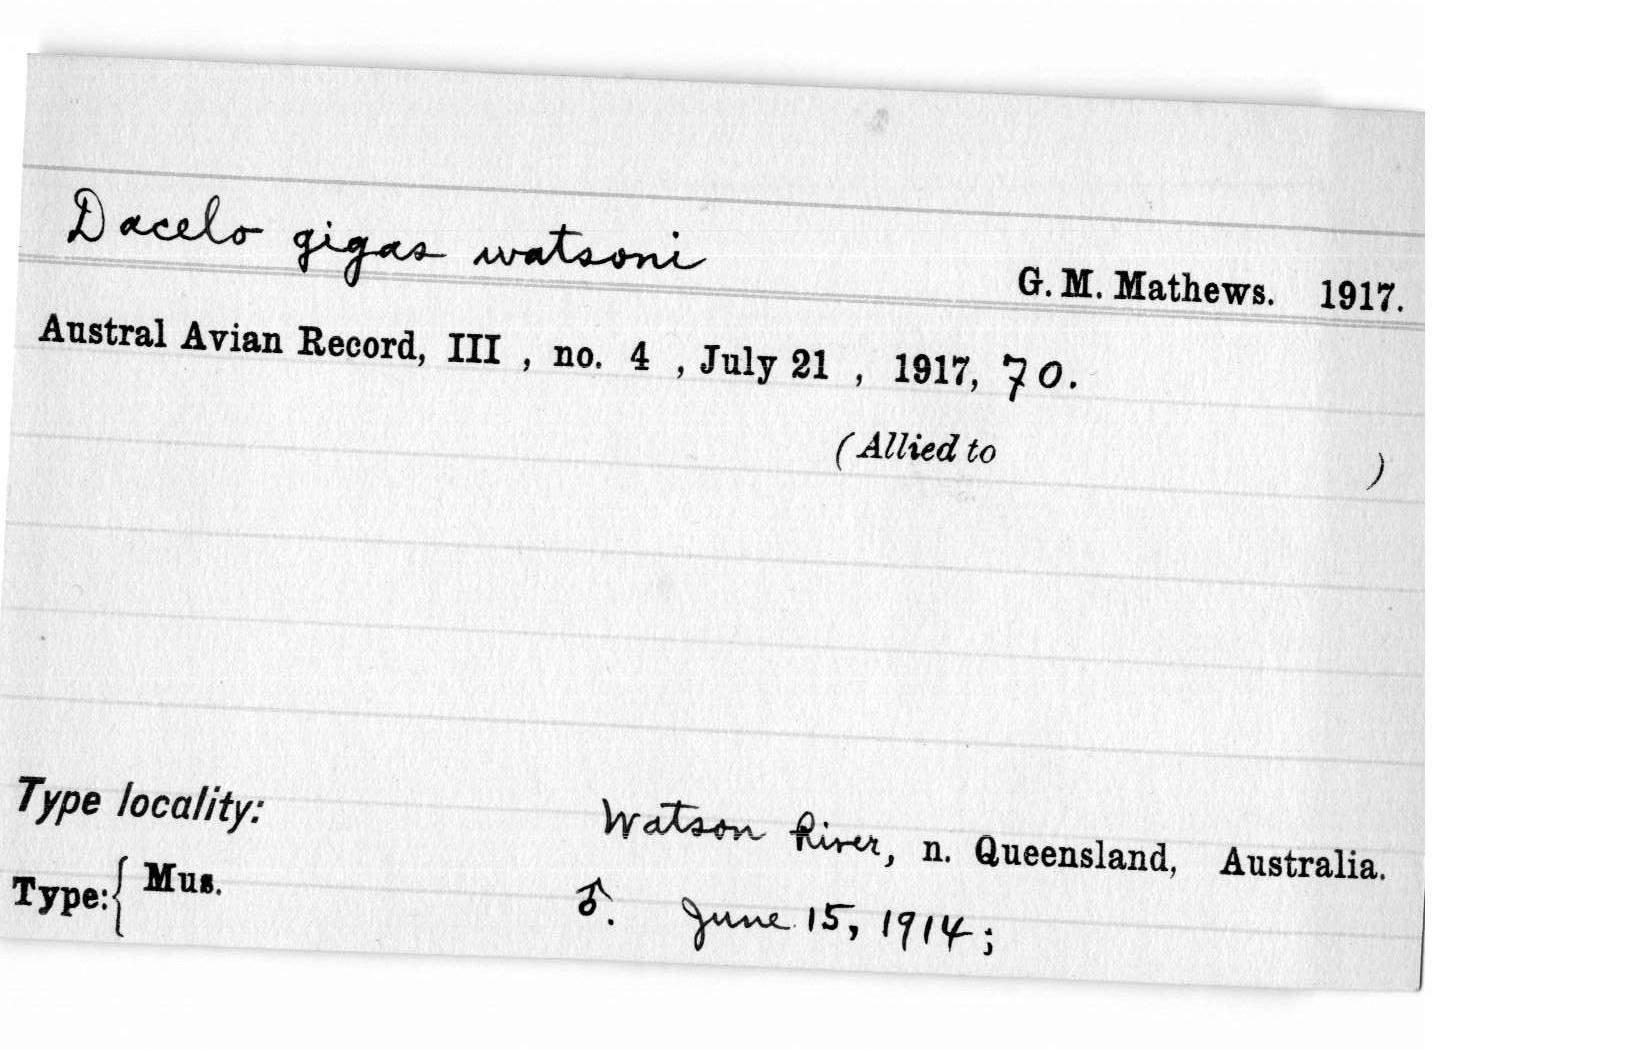 Dacelo gigas watsoni
G. M. Mathews. 1917.
Austral Avian Record, III , no. 4 , July 21 , 1917, 70.
(Allied to )
Type locality:
Watson River, n. Queensland, Australia.
Type:{ Mus. ♂. June 15, 1914;